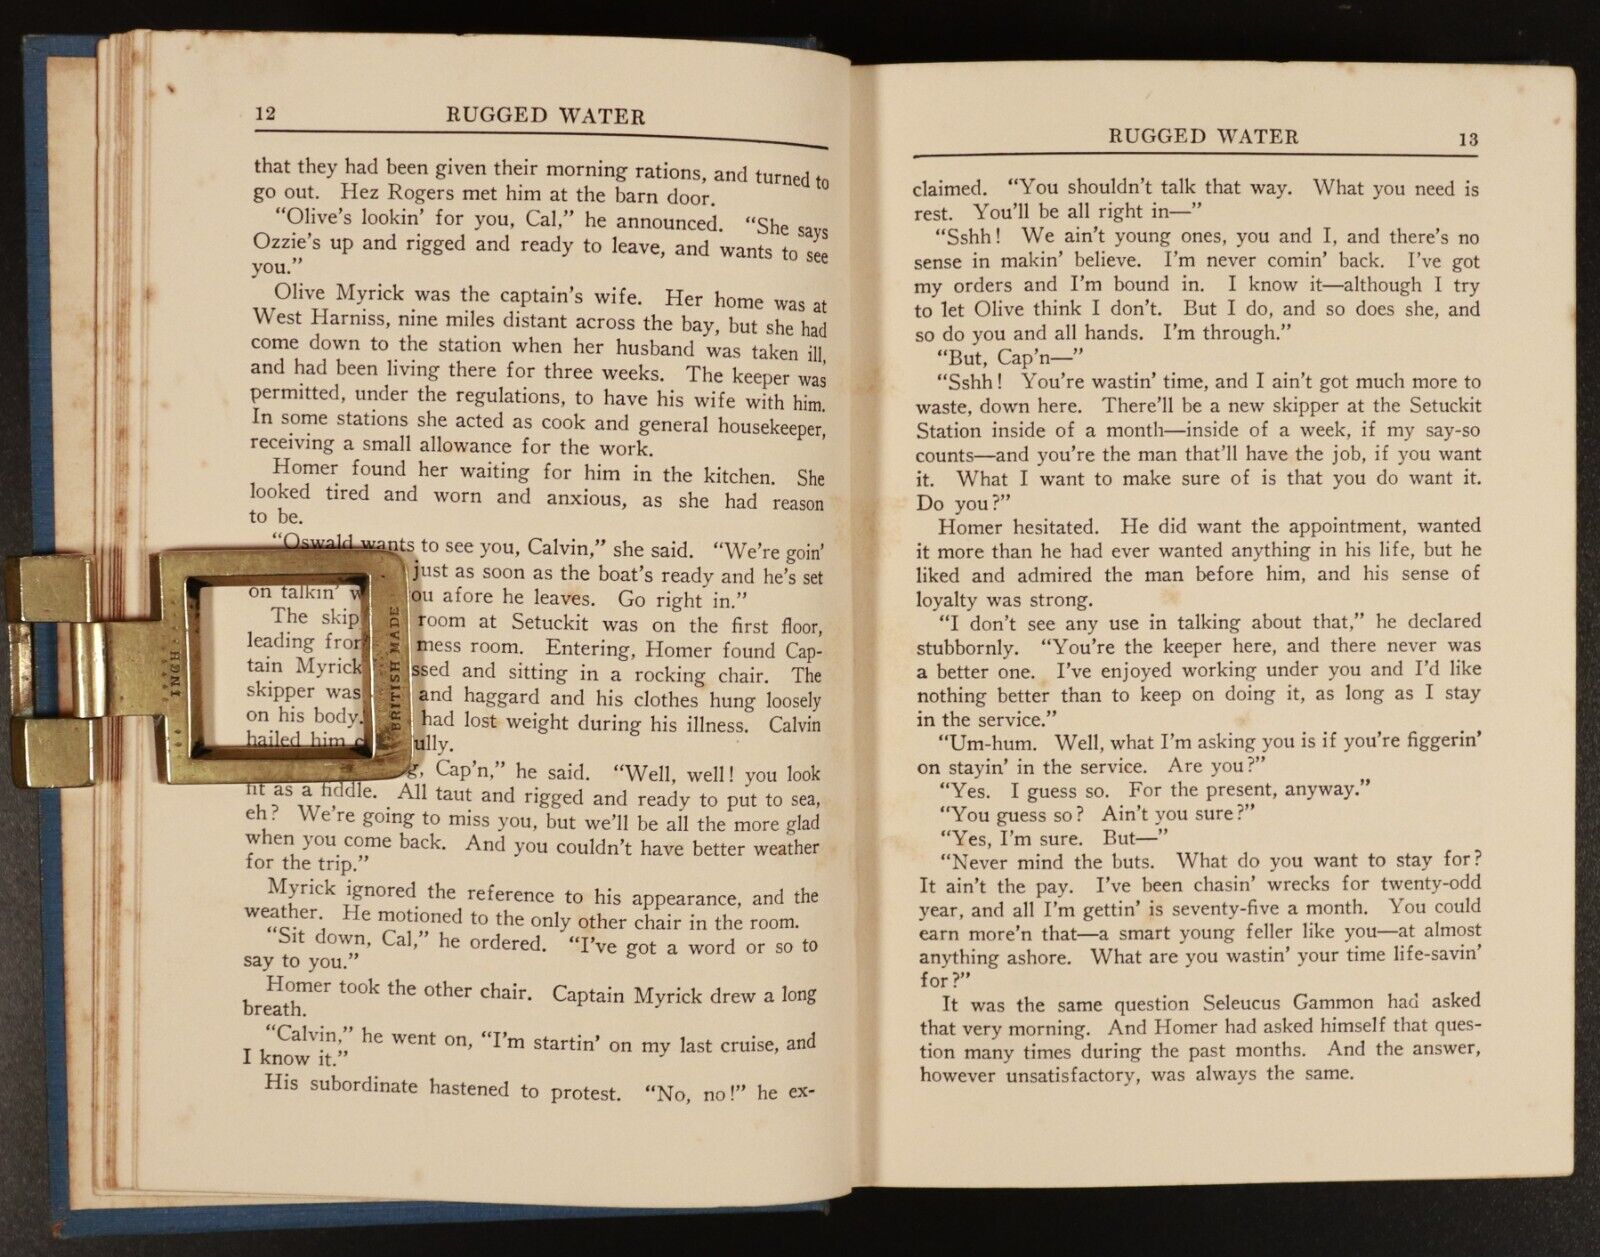 12 RUGGED WATER
that they had been given their morning rations, and turned to
go out. Hez Rogers met him at the barn door.
“Olive’s lookin’ for you, Cal,” he announced. “She says
Ozzie’s up and rigged and ready to leave, and wants to see
you.”
Olive Myrick was the captain’s wife. Her home was at
West Harniss, nine miles distant across the bay, but she had
come down to the station when her husband was taken ill,
and had been living there for three weeks. The keeper was
permitted, under the regulations, to have his wife with him.
In some stations she acted as cook and general housekeeper,
receiving a small allowance for the work.
Homer found her waiting for him in the kitchen. She
looked tired and worn and anxious, as she had reason
to be.
“Oswald wants to see you, Calvin,” she said. “We’re goin’
just as soon as the boat’s ready and he’s set
on talkin’ w ou afore he leaves. Go right in.”
The skip room at Setuckit was on the first floor,
leading from mess room. Entering, Homer found Cap-
tain Myrick ssed and sitting in a rocking chair. The
skipper was and haggard and his clothes hung loosely
on his body. had lost weight during his illness. Calvin
hailed him c ully.
g, Cap’n,” he said. “Well, well! you look
fit as a fiddle. All taut and rigged and ready to put to sea,
eh? We’re going to miss you, but we’ll be all the more glad
when you come back. And you couldn’t have better weather
for the trip.”
Myrick ignored the reference to his appearance, and the
weather. He motioned to the only other chair in the room.
“Sit down, Cal,” he ordered. “I’ve got a word or so to
say to you.”
Homer took the other chair. Captain Myrick drew a long
breath.
“Calvin,” he went on, “I’m startin’ on my last cruise, and
I know it.”
His subordinate hastened to protest. “No, no!” he ex-
INGH
BRITISH MADE
RUGGED WATER 13
claimed. “You shouldn’t talk that way. What you need is
rest. You’ll be all right in—”
“Sshh! We ain’t young ones, you and I, and there’s no
sense in makin’ believe. I’m never comin’ back. I’ve got
my orders and I’m bound in. I know it—although I try
to let Olive think I don’t. But I do, and so does she, and
so do you and all hands. I’m through.”
“But, Cap’n—”
“Sshh! You’re wastin’ time, and I ain’t got much more to
waste, down here. There’ll be a new skipper at the Setuckit
Station inside of a month—inside of a week, if my say-so
counts—and you’re the man that’ll have the job, if you want
it. What I want to make sure of is that you do want it.
Do you?”
Homer hesitated. He did want the appointment, wanted
it more than he had ever wanted anything in his life, but he
liked and admired the man before him, and his sense of
loyalty was strong.
“I don’t see any use in talking about that,” he declared
stubbornly. “You’re the keeper here, and there never was
a better one. I’ve enjoyed working under you and I’d like
nothing better than to keep on doing it, as long as I stay
in the service.”
“Um-hum. Well, what I’m asking you is if you’re figgerin’
on stayin’ in the service. Are you?”
“Yes. I guess so. For the present, anyway.”
“You guess so? Ain’t you sure?”
“Yes, I’m sure. But—”
“Never mind the buts. What do you want to stay for?
It ain’t the pay. I’ve been chasin’ wrecks for twenty-odd
year, and all I’m gettin’ is seventy-five a month. You could
earn more’n that—a smart young feller like you—at almost
anything ashore. What are you wastin’ your time life-savin’
for?”
It was the same question Seleucus Gammon had asked
that very morning. And Homer had asked himself that ques-
tion many times during the past months. And the answer,
however unsatisfactory, was always the same.